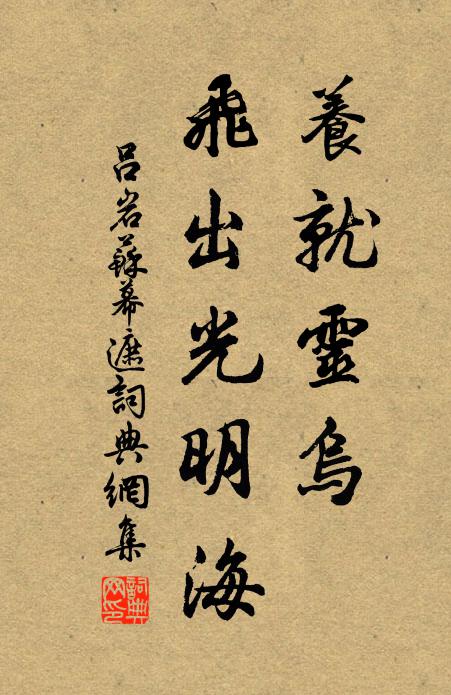 養就靈烏
飛出光明海
呂岩蘇幕遮詞典網集
詞典网印